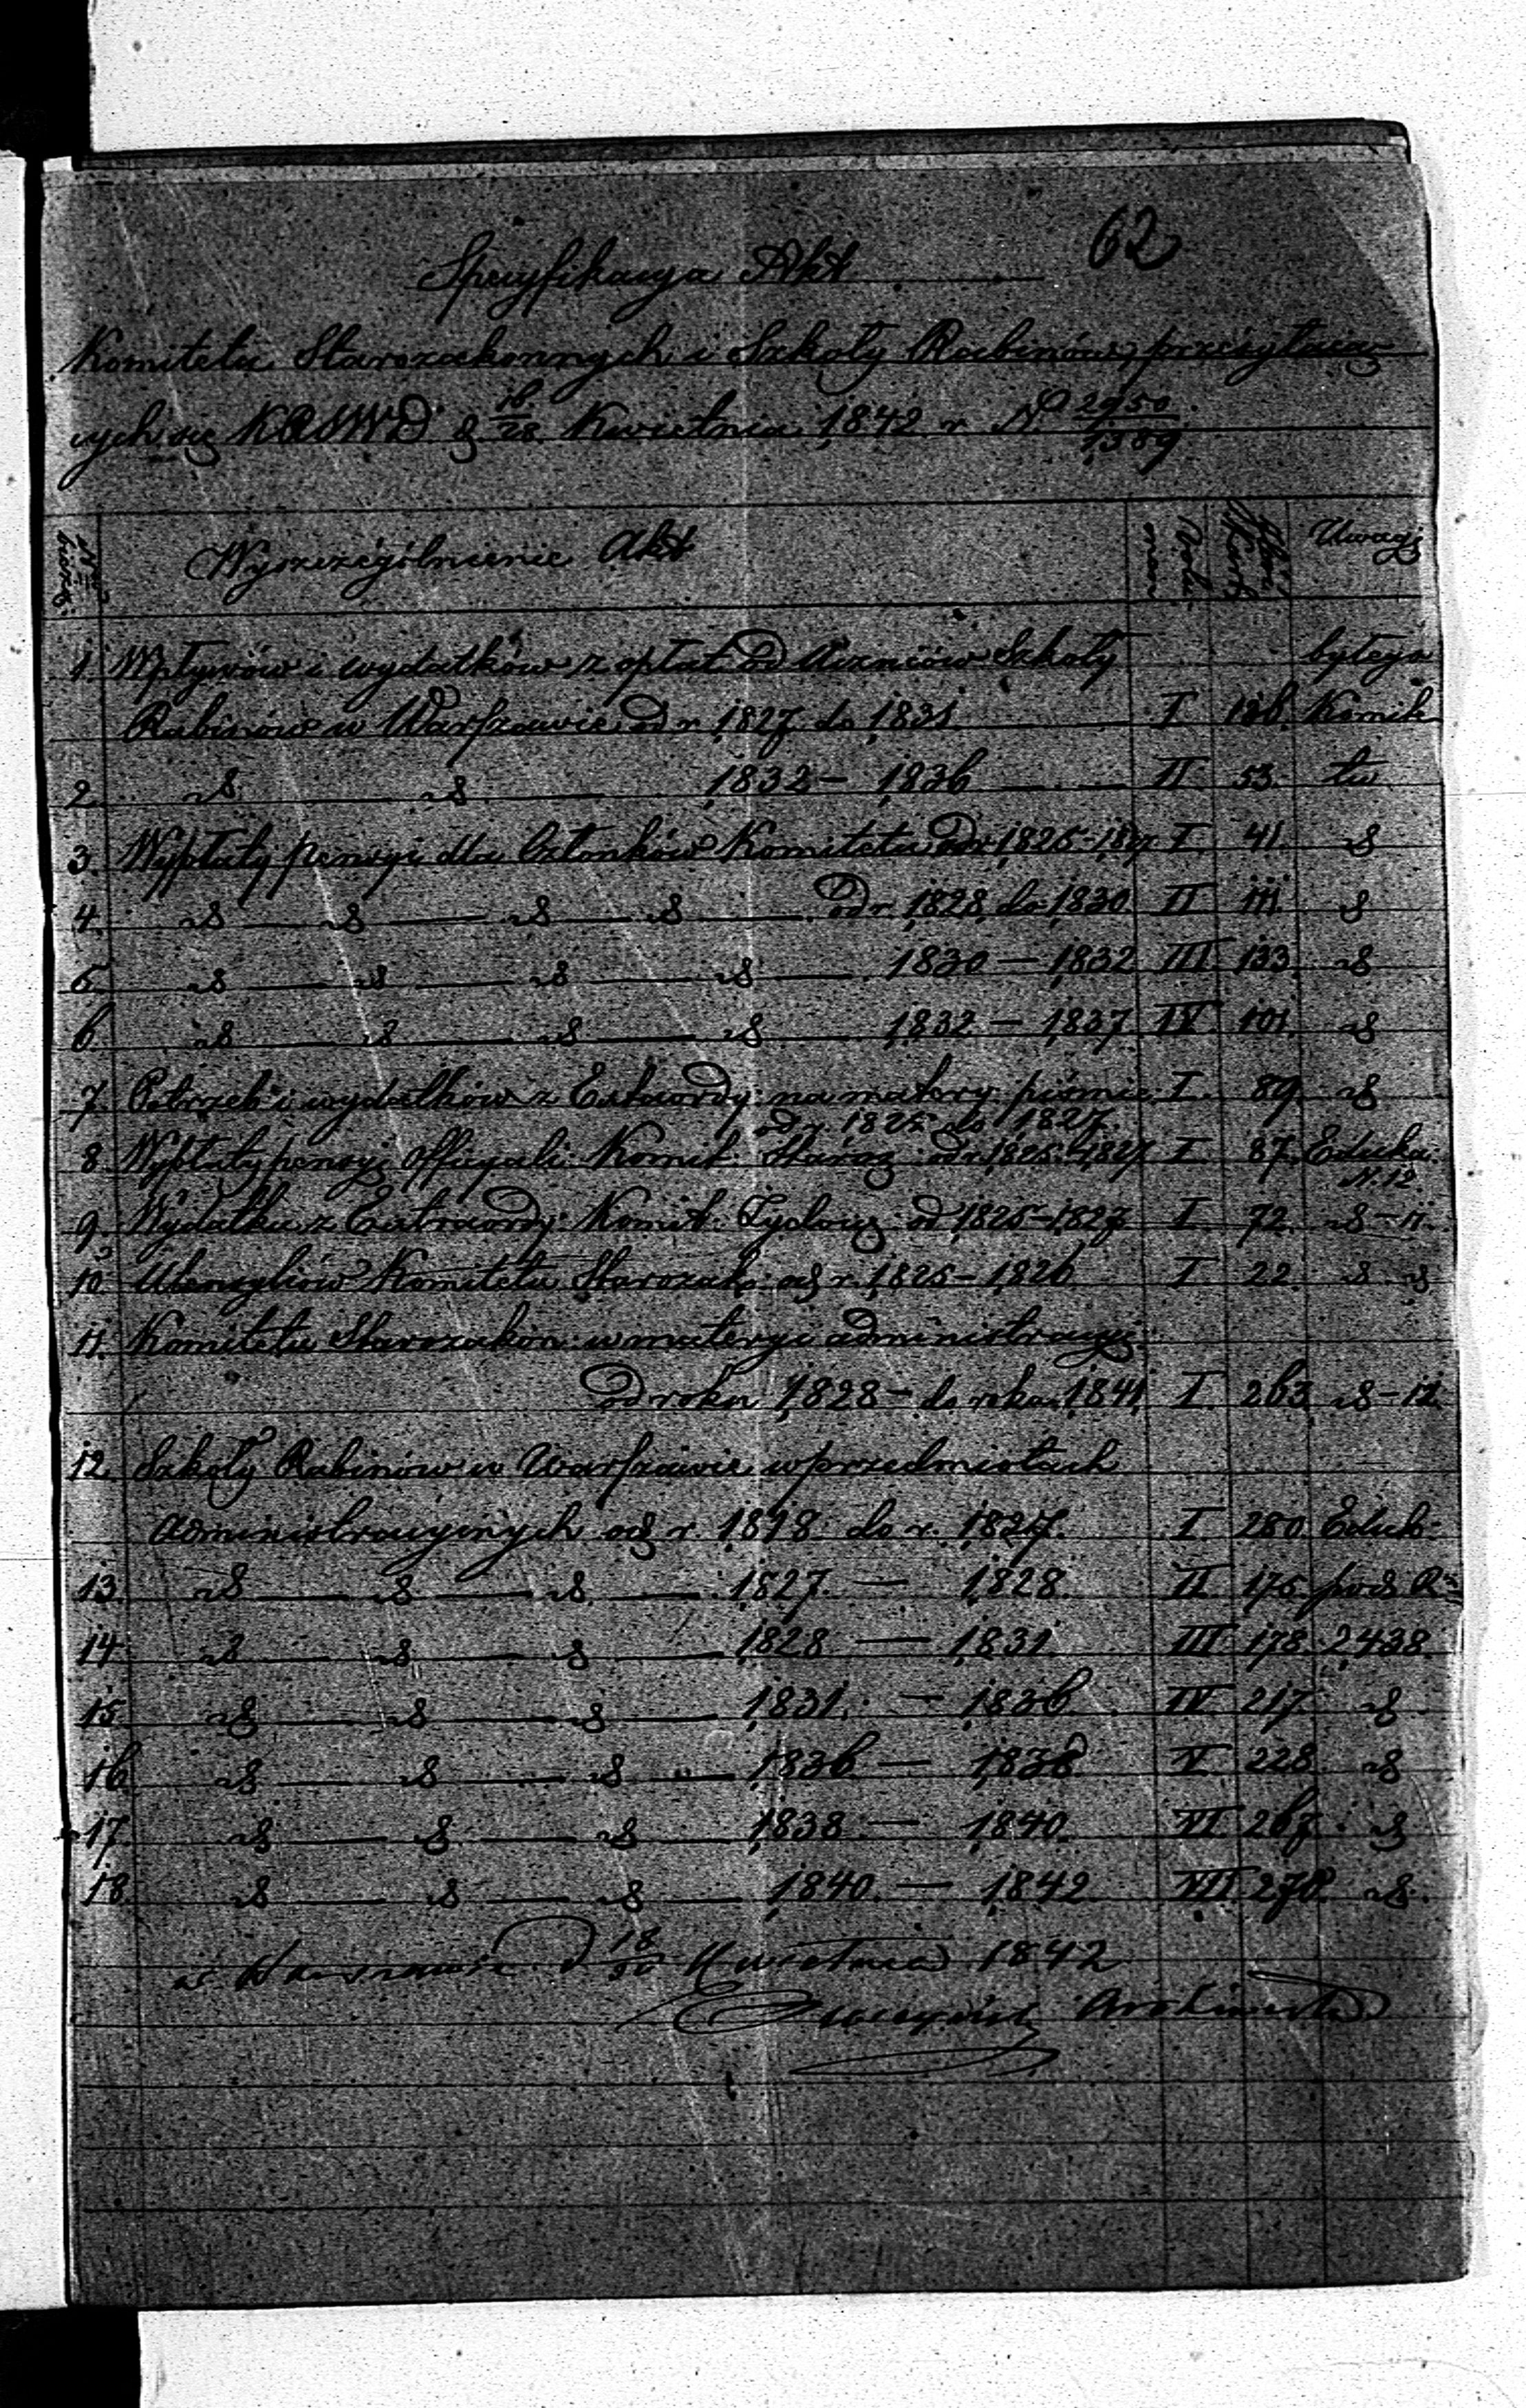 62
Specyfikacya Akt
Komitetu Starozakonnych i Szkoły Rabinów, ściągaią
cych się KRSWD d 16/28 Kwietnia 1842 r No 2950/1389
Wyszczególnienie Akt Volumen Uwagi
1. Wpływów i wydatków z opłat od Uczniów Szkoły byłego
Rabinów w Warszawie od r. 1827 do 1831 I 126. Komite
2. dº dº 1832 – 1836 II 53. tu
3. Wypłaty pensyi dla Członków Komitetu od r 1825–1827 I 41. dº
4. dº dº dº dº od r. 1828 do 1830. II 111. dº
5. dº dº dº dº 1830 – 1832 III 133. dº
6. dº dº dº dº 1832 – 1837 IV 101. dº
7. Potrzeb i wydatków z Extraordy: na matery: piśmie. I. 89 dº
od r. 1825 do 1827.
8. Wypłaty pensyi Offiyali Komit: Staroz: od r. 1825–1827 I 87. Eduka:
N. 12
9. Wydatku z Extraordy: Komit: Żydow: od 1825–1827 I 72. dº – 11.
10. Utensyliów Komitetu Starozak: od r. 1825–1826 I 22. dº dº
11. Komitetu Starozakon: w materyi administracyi
od roku 1828 – do roku 1841 I 263. dº – 12.
12. Szkoły Rabinów w Warszawie w przedmiotach
administracyinych od r. 1818 do r. 1827. I 280. Eduk:
13. dº dº dº 1827. – 1828. II 175. pod
14. dº dº dº 1828 – 1831. III 178. 2,438.
15. dº dº dº 1831. – 1836. IV 217. dº
16. dº dº dº 1836 – 1838 V 228. dº
17. dº dº dº 1838 – 1840. VI 267. dº
18. dº dº dº 1840. – 1842. VII 278. dº
w Warszawie d 18/30 Kwietnia 1842
Archiwista